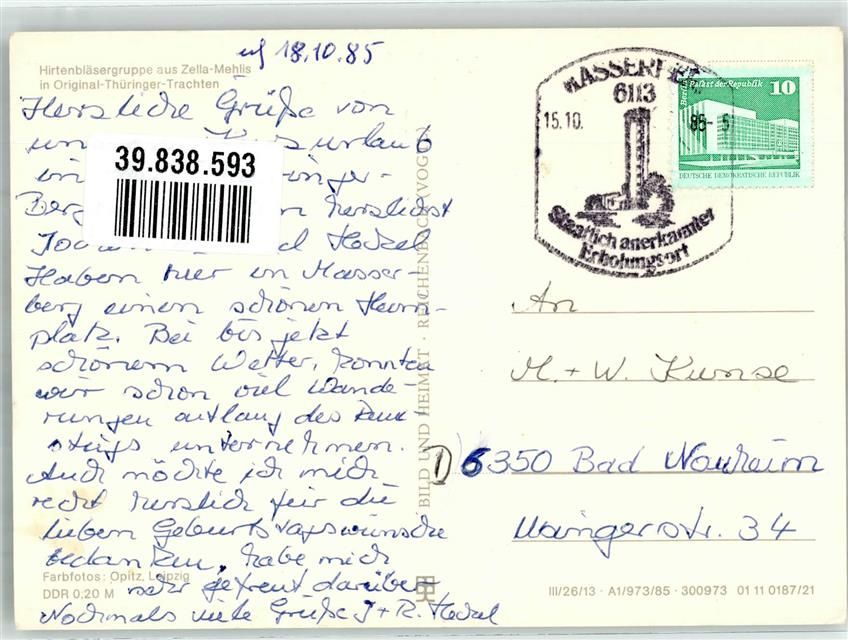 erh 18.10.85
Hirtenbläsergruppe aus Zella-Mehlis
in Original-Thüringer-Trachten
Herzliche Grüße von
uns Kurzurlaub
im inger-
Berg n herzlichst
d Heckel
Haben hier in Masser-
berg einen schönen Heim-
platz. Bei bis jetzt
schönem Wetter, konnten
wir schon viel Wande-
rungen entlang des Renn-
steigs unternehmen.
Auch möchte ich mich
recht herzlich für die
lieben Geburtstagswünsche
bedanken, habe mich
sehr gefreut darüber
Nochmals viele Grüße J+R. Heckel
39.838.593
Farbfotos: Opitz, Leipzig
DDR 0,20 M
BILD UND HEIMAT · REICHENBACH (VOGTL)
MASSERBERG
6113
15.10. 85-5
Staatlich anerkannter
Erholungsort
Berlin, Palast der Republik 10
DEUTSCHE DEMOKRATISCHE REPUBLIK
An
M. + W. Kunse
D 6350 Bad Nauheim
Maingerstr. 34
III/26/13 · A1/973/85 · 300973 01 11 0187/21